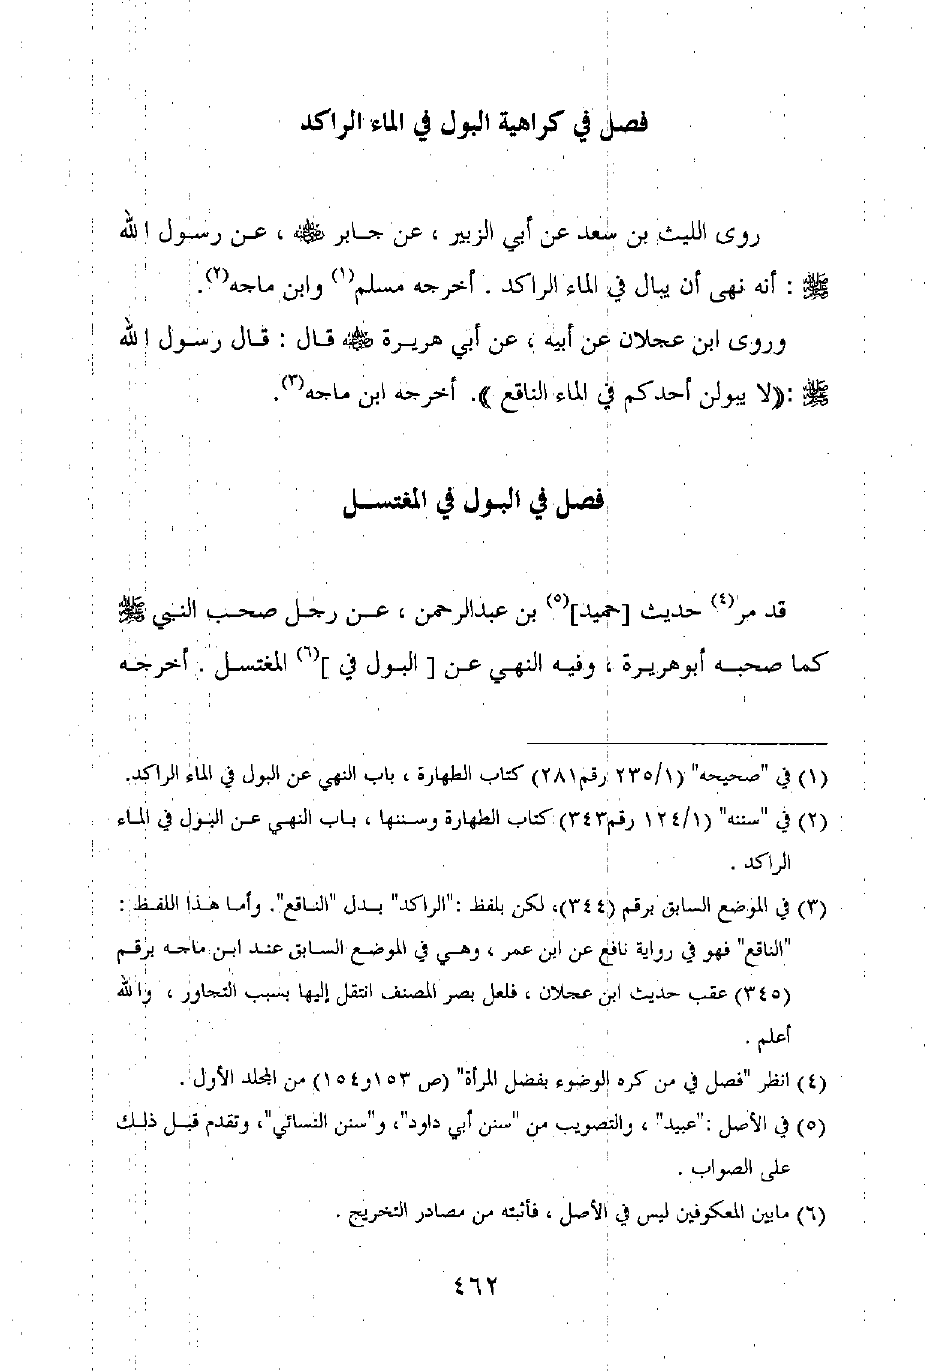 فصل في كراهية البول في الماء الراكد
روى الليث بن سعد عن أبي الزبير ، عن جابر ﷺ ، عن رسول الله
ﷺ : أنه نهى أن يبال في الماء الراكد . أخرجه مسلم(١) وابن ماجه(٢).
وروى ابن عجلان عن أبيه ، عن أبي هريرة ﷺ قال : قال رسول الله
ﷺ :((لا يبولن أحدكم في الماء الناقع )). أخرجه ابن ماجه(٣).
فصل في البول في المغتسل
قد مر(٤) حديث [حميد](٥) بن عبدالرحمن ، عن رجل صحب النبي ﷺ
كما صحبه أبوهريرة ، وفيه النهي عن [ البول في ](٦) المغتسل . أخرجه
(١) في "صحيحه" (٢٣٥/١ رقم٢٨١) كتاب الطهارة ، باب النهي عن البول في الماء الراكد.
(٢) في "سننه" (١٢٤/١ رقم٣٤٣) كتاب الطهارة وسننها ، باب النهي عن البول في الماء
الراكد .
(٣) في الموضع السابق برقم (٣٤٤)، لكن بلفظ :"الراكد" بدل "الناقع". وأما هذا اللفظ :
"الناقع" فهو في رواية نافع عن ابن عمر ، وهي في الموضع السابق عند ابن ماجه برقم
(٣٤٥) عقب حديث ابن عجلان ، فلعل بصر المصنف انتقل إليها بسبب التجاور ، والله
أعلم .
(٤) انظر "فصل في من كره الوضوء بفضل المرأة" (ص ١٥٣و١٥٤) من المجلد الأول .
(٥) في الأصل :"عبيد" ، والتصويب من "سنن أبي داود"، و"سنن النسائي"، وتقدم قبل ذلك
على الصواب .
(٦) مابين المعكوفين ليس في الأصل ، فأثبته من مصادر التخريج .
٤٦٢